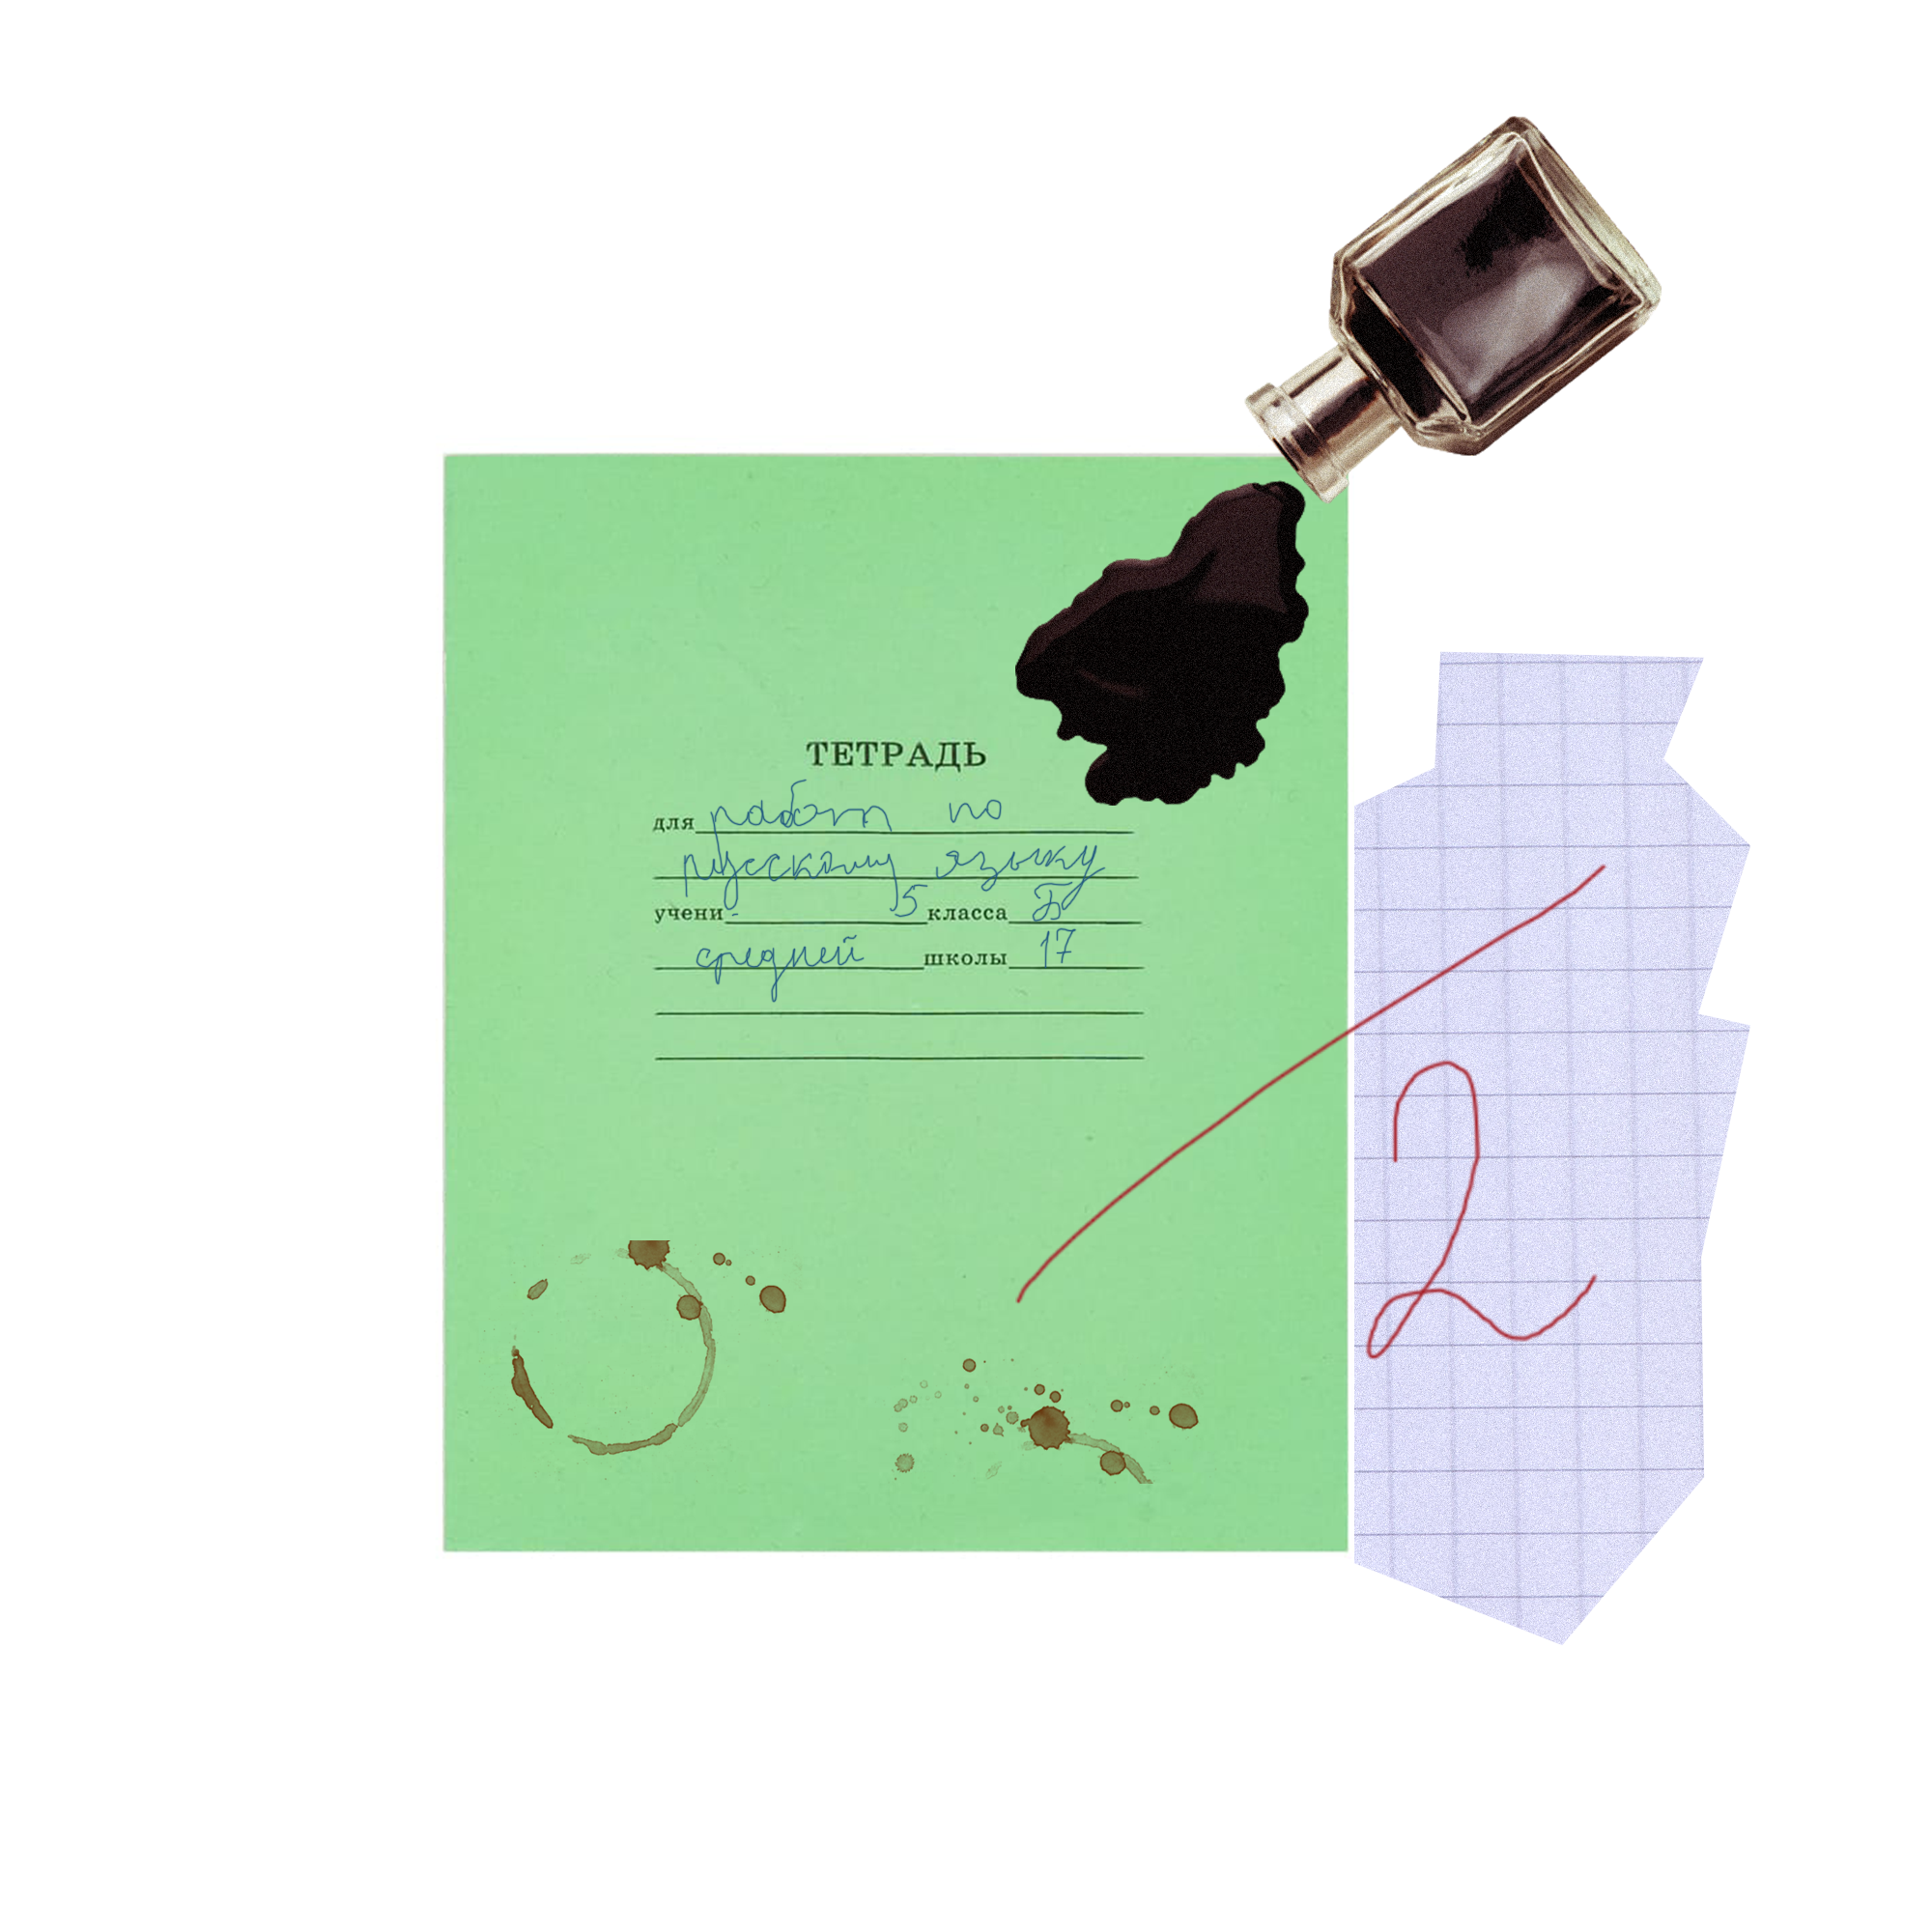 ТЕТРАДЬ
для работ по
русскому языку
учени 5 класса Б
средней школы 17
2